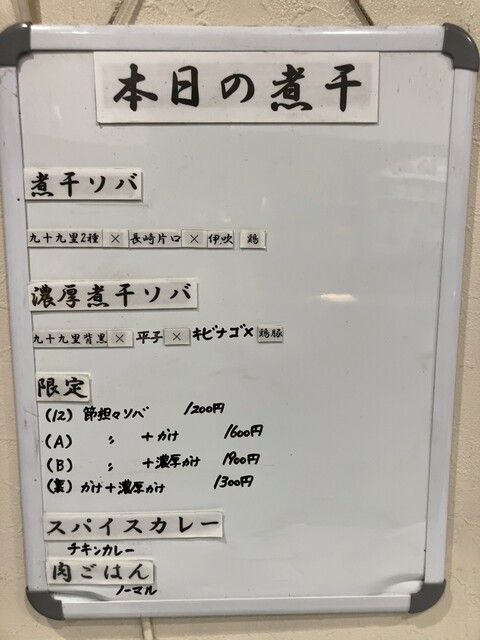 本日の煮干
煮干ソバ
九十九里2種 × 長崎片口 × 伊吹 鶏
濃厚煮干ソバ
九十九里背黒 × 平子 × キビナゴ× 鶏豚
限定
(12) 節担々ソバ 1200円
(A) 〃 +かけ 1600円
(B) 〃 +濃厚かけ 1900円
(裏) かけ+濃厚かけ 1300円
スパイスカレー
チキンカレー
肉ごはん
ノーマル